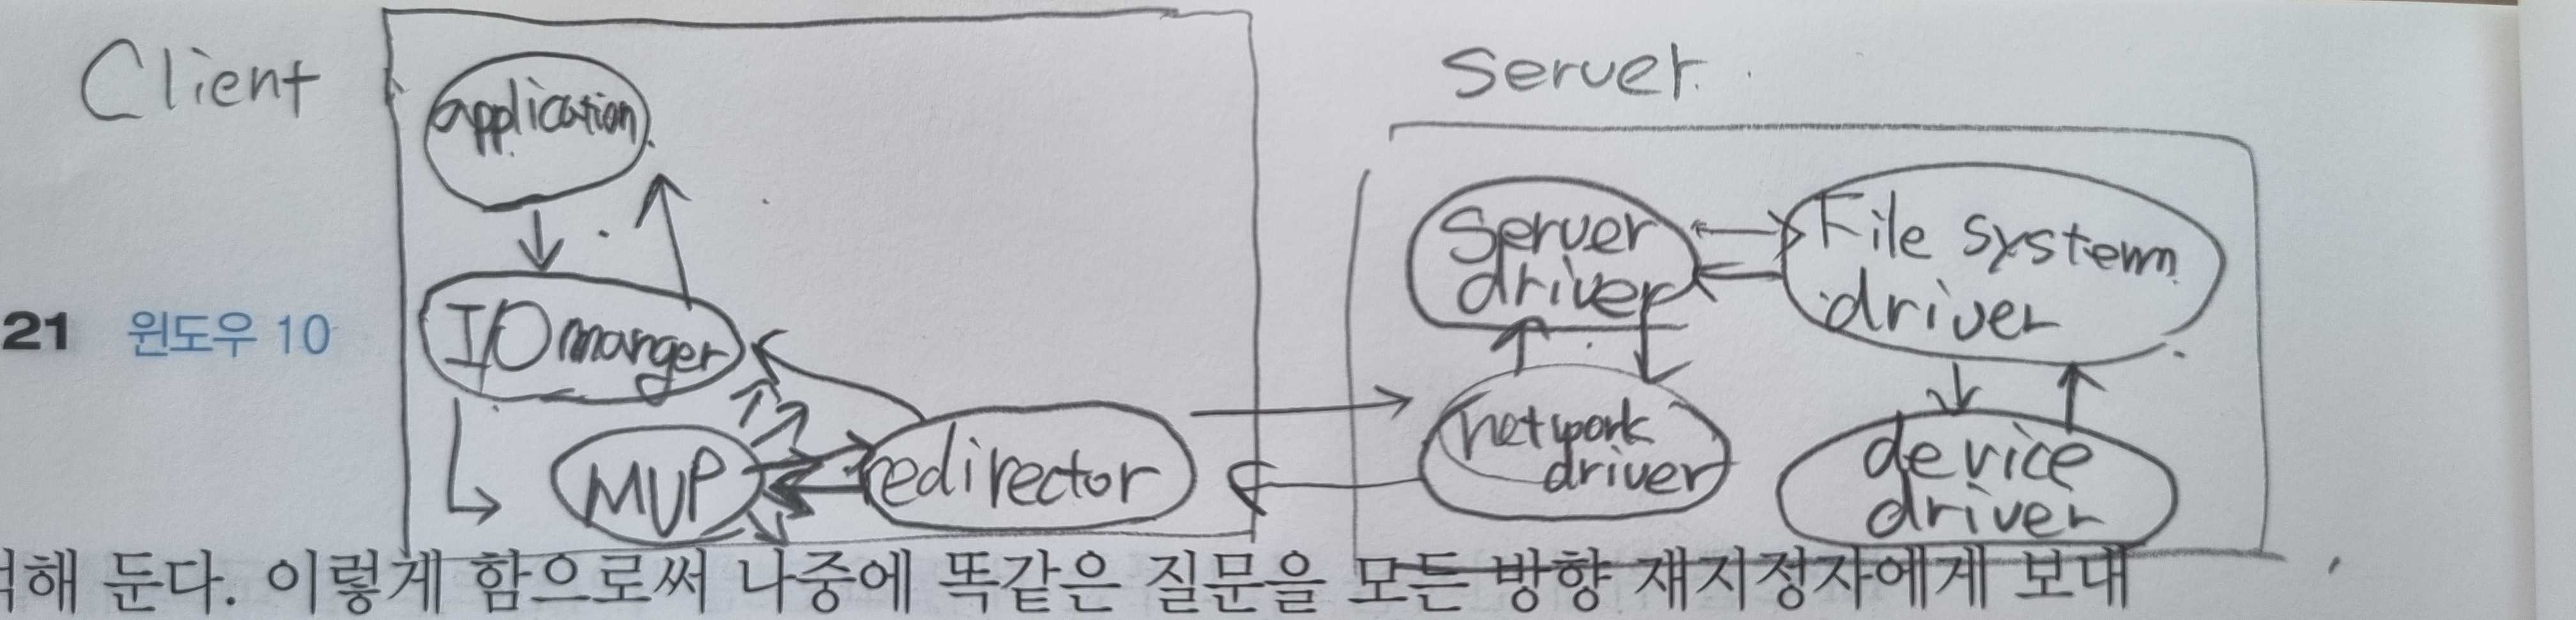 Client
application
I/O manger
MUP
redirector
Server
Server
driver
File system
driver
network
driver
device
driver
21 윈도우 10
해 둔다. 이렇게 함으로써 나중에 똑같은 질문을 모든 방향 재지정자에게 보내